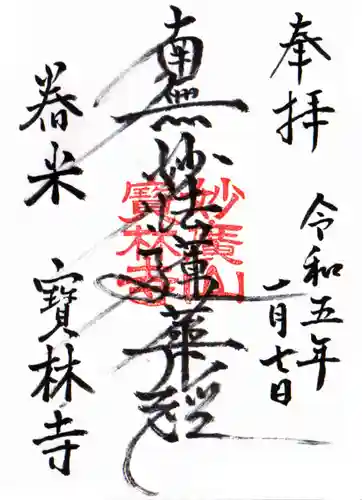 奉拝
令和五年
一月七日
南無妙法蓮華経
妙廣山
寳林寺
舂米
寳林寺